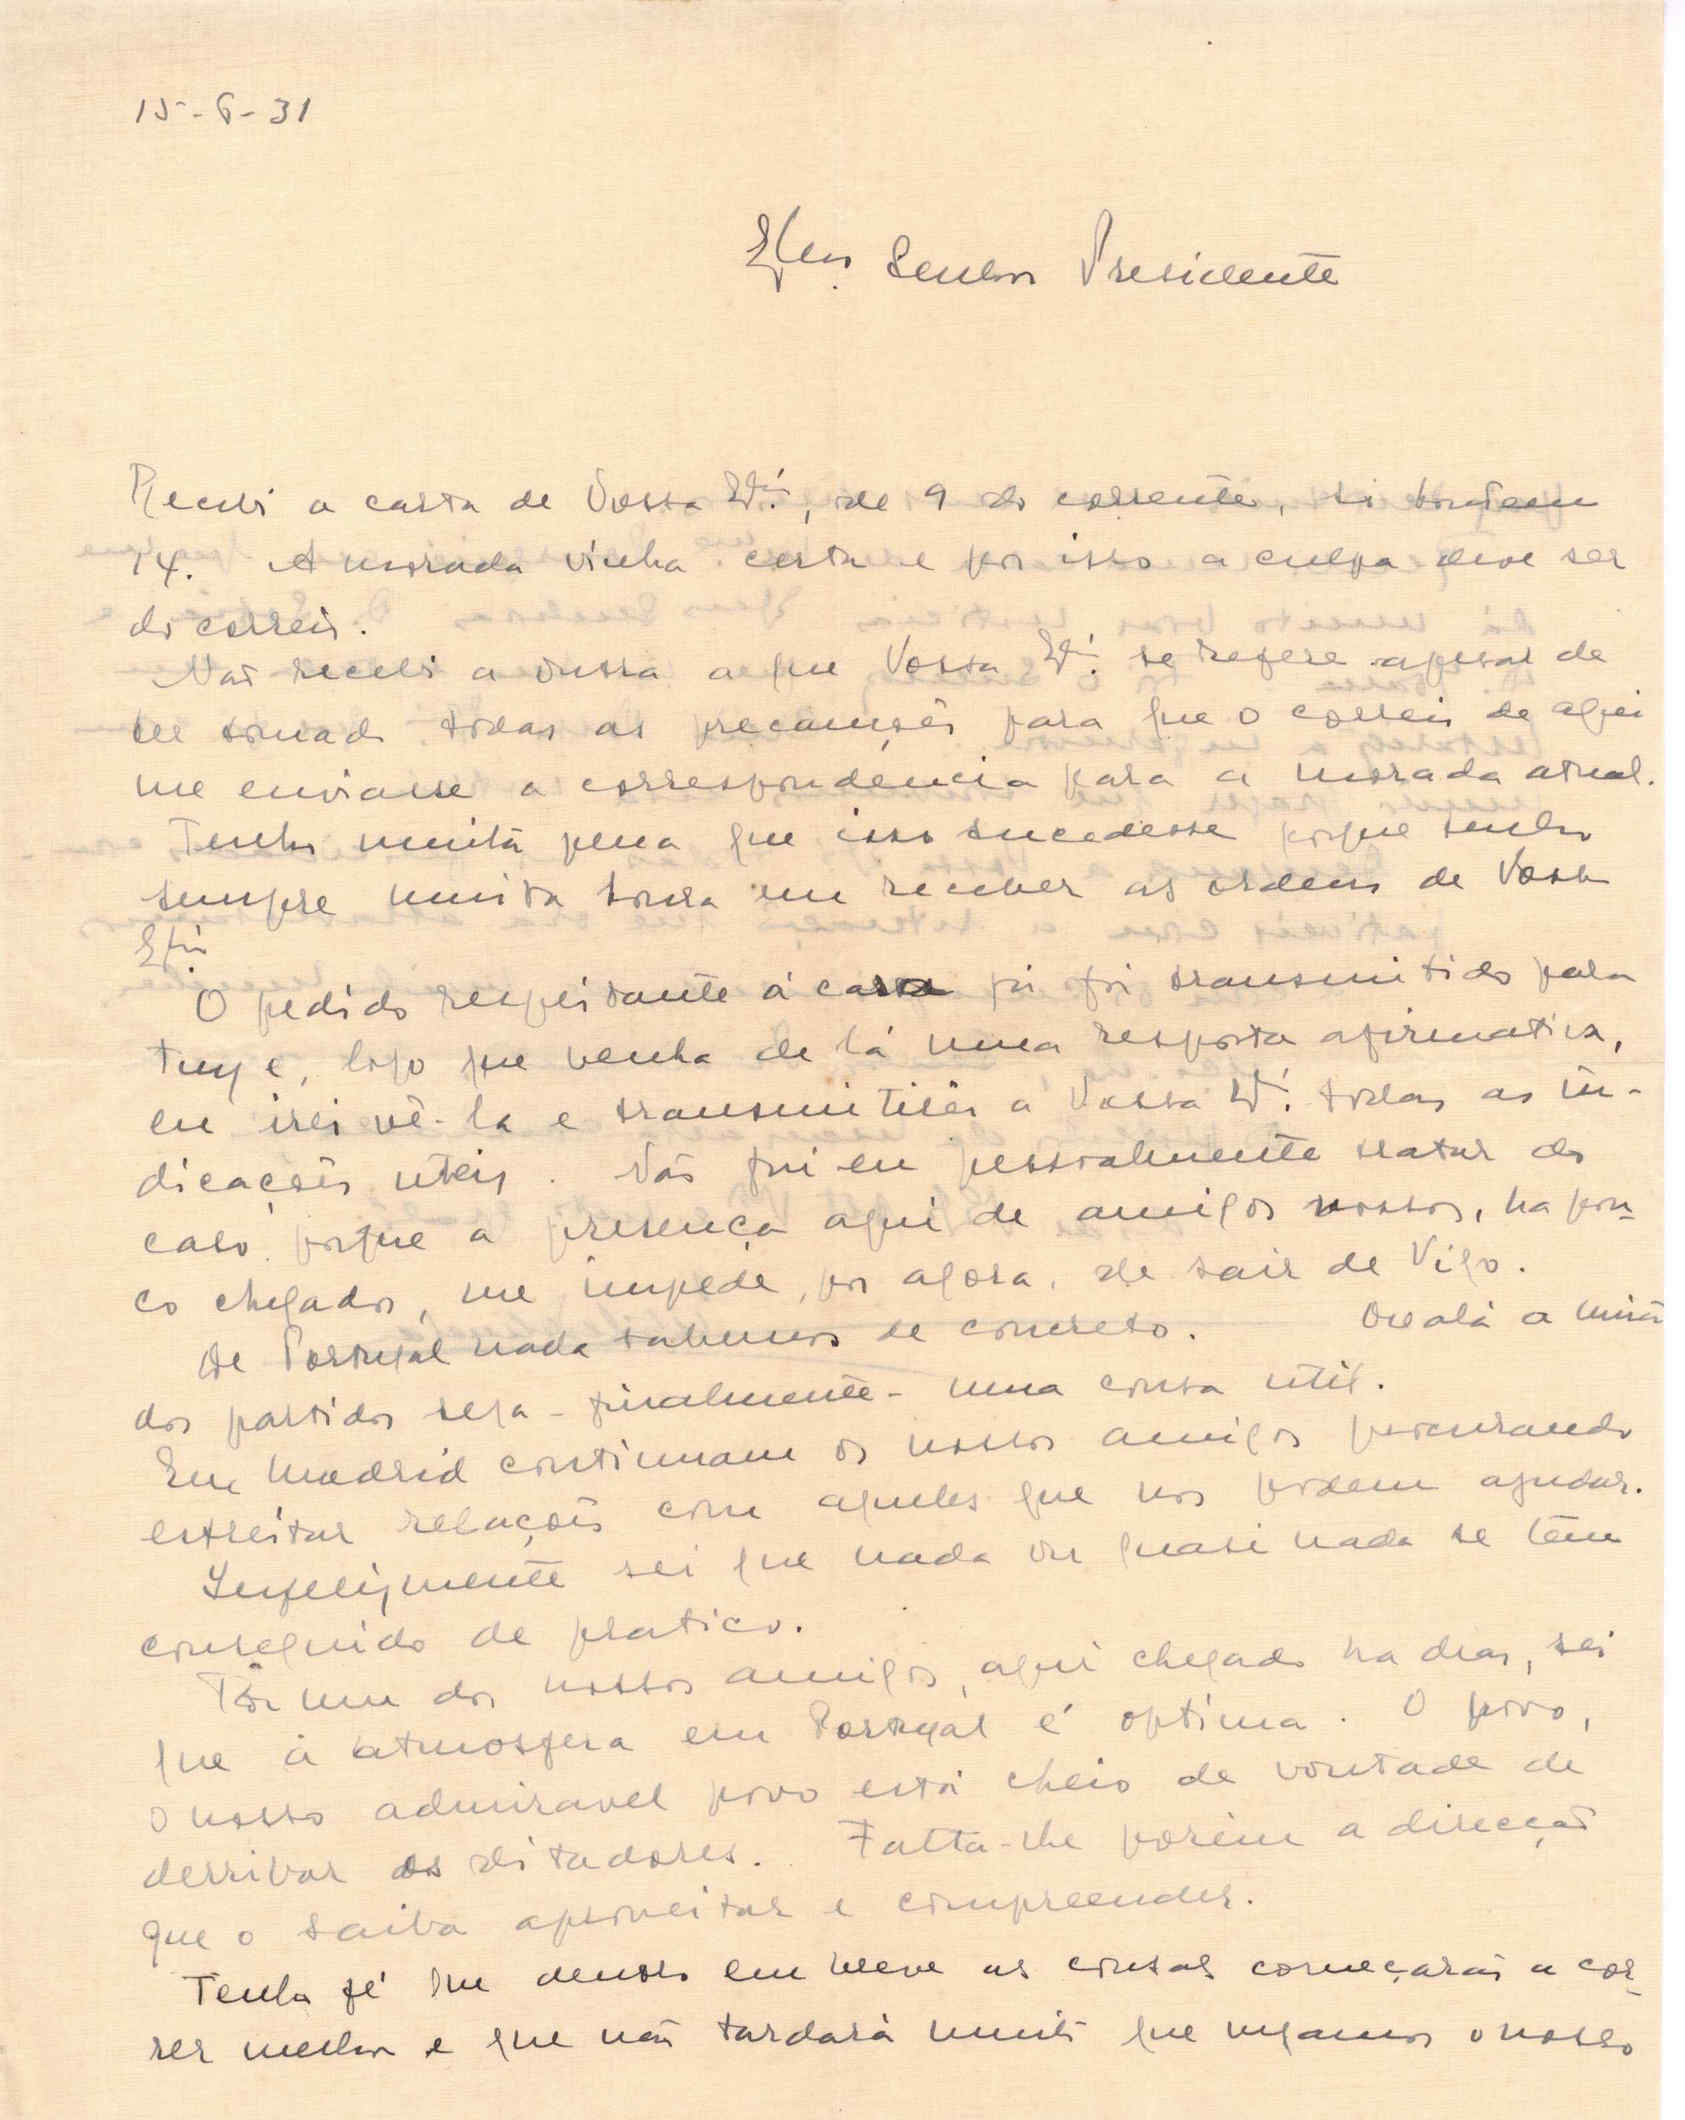 15-6-31
Exmo. Senhor Presidente
Recebi a carta de Vossa Exª., de 9 do corrente, só hontem
14. A morada vinha certa e por isso a culpa deve ser
do correio.
Não recebi a outra a que Vossa Exª. se refere apesar de
ter tomado todas as precauções para que o correio de aqui
me enviasse a correspondência para a morada atual.
Tenho muita pena que isso sucedesse porque tenho
sempre muita honra em receber as ordens de Vossa
Exª.
O pedido respeitante á casa já foi transmitido para
Tuy e, logo que venha de lá uma resposta afirmativa,
eu irei vê-la e transmitirei a Vossa Exª. todas as in-
dicações uteis. Não fui eu pessoalmente tratar do
caso porque a presença aqui de amigos nossos, ha pou-
co chegados, me impede, por agora, de sair de Vigo.
De Portugal nada sabemos de concreto. Oxalá a união
dos partidos seja - finalmente - uma cousa util.
Em Madrid continuam os nossos amigos procurando
estreitar relações com aqueles que nos podem ajudar.
Infelizmente sei que nada ou quasi nada se tem
conseguido de pratico.
Por um dos nossos amigos, aqui chegado ha dias, sei
que a atmosfera em Portugal é optima. O povo,
o nosso admiravel povo está cheio de vontade de
derribar os ditadores. Falta-lhe porém a direcção
que o saiba aproveitar e compreender.
Tenho fé que dentro em breve as cousas começarão a cor-
rer melhor e que não tardará muito que vejamos o nosso